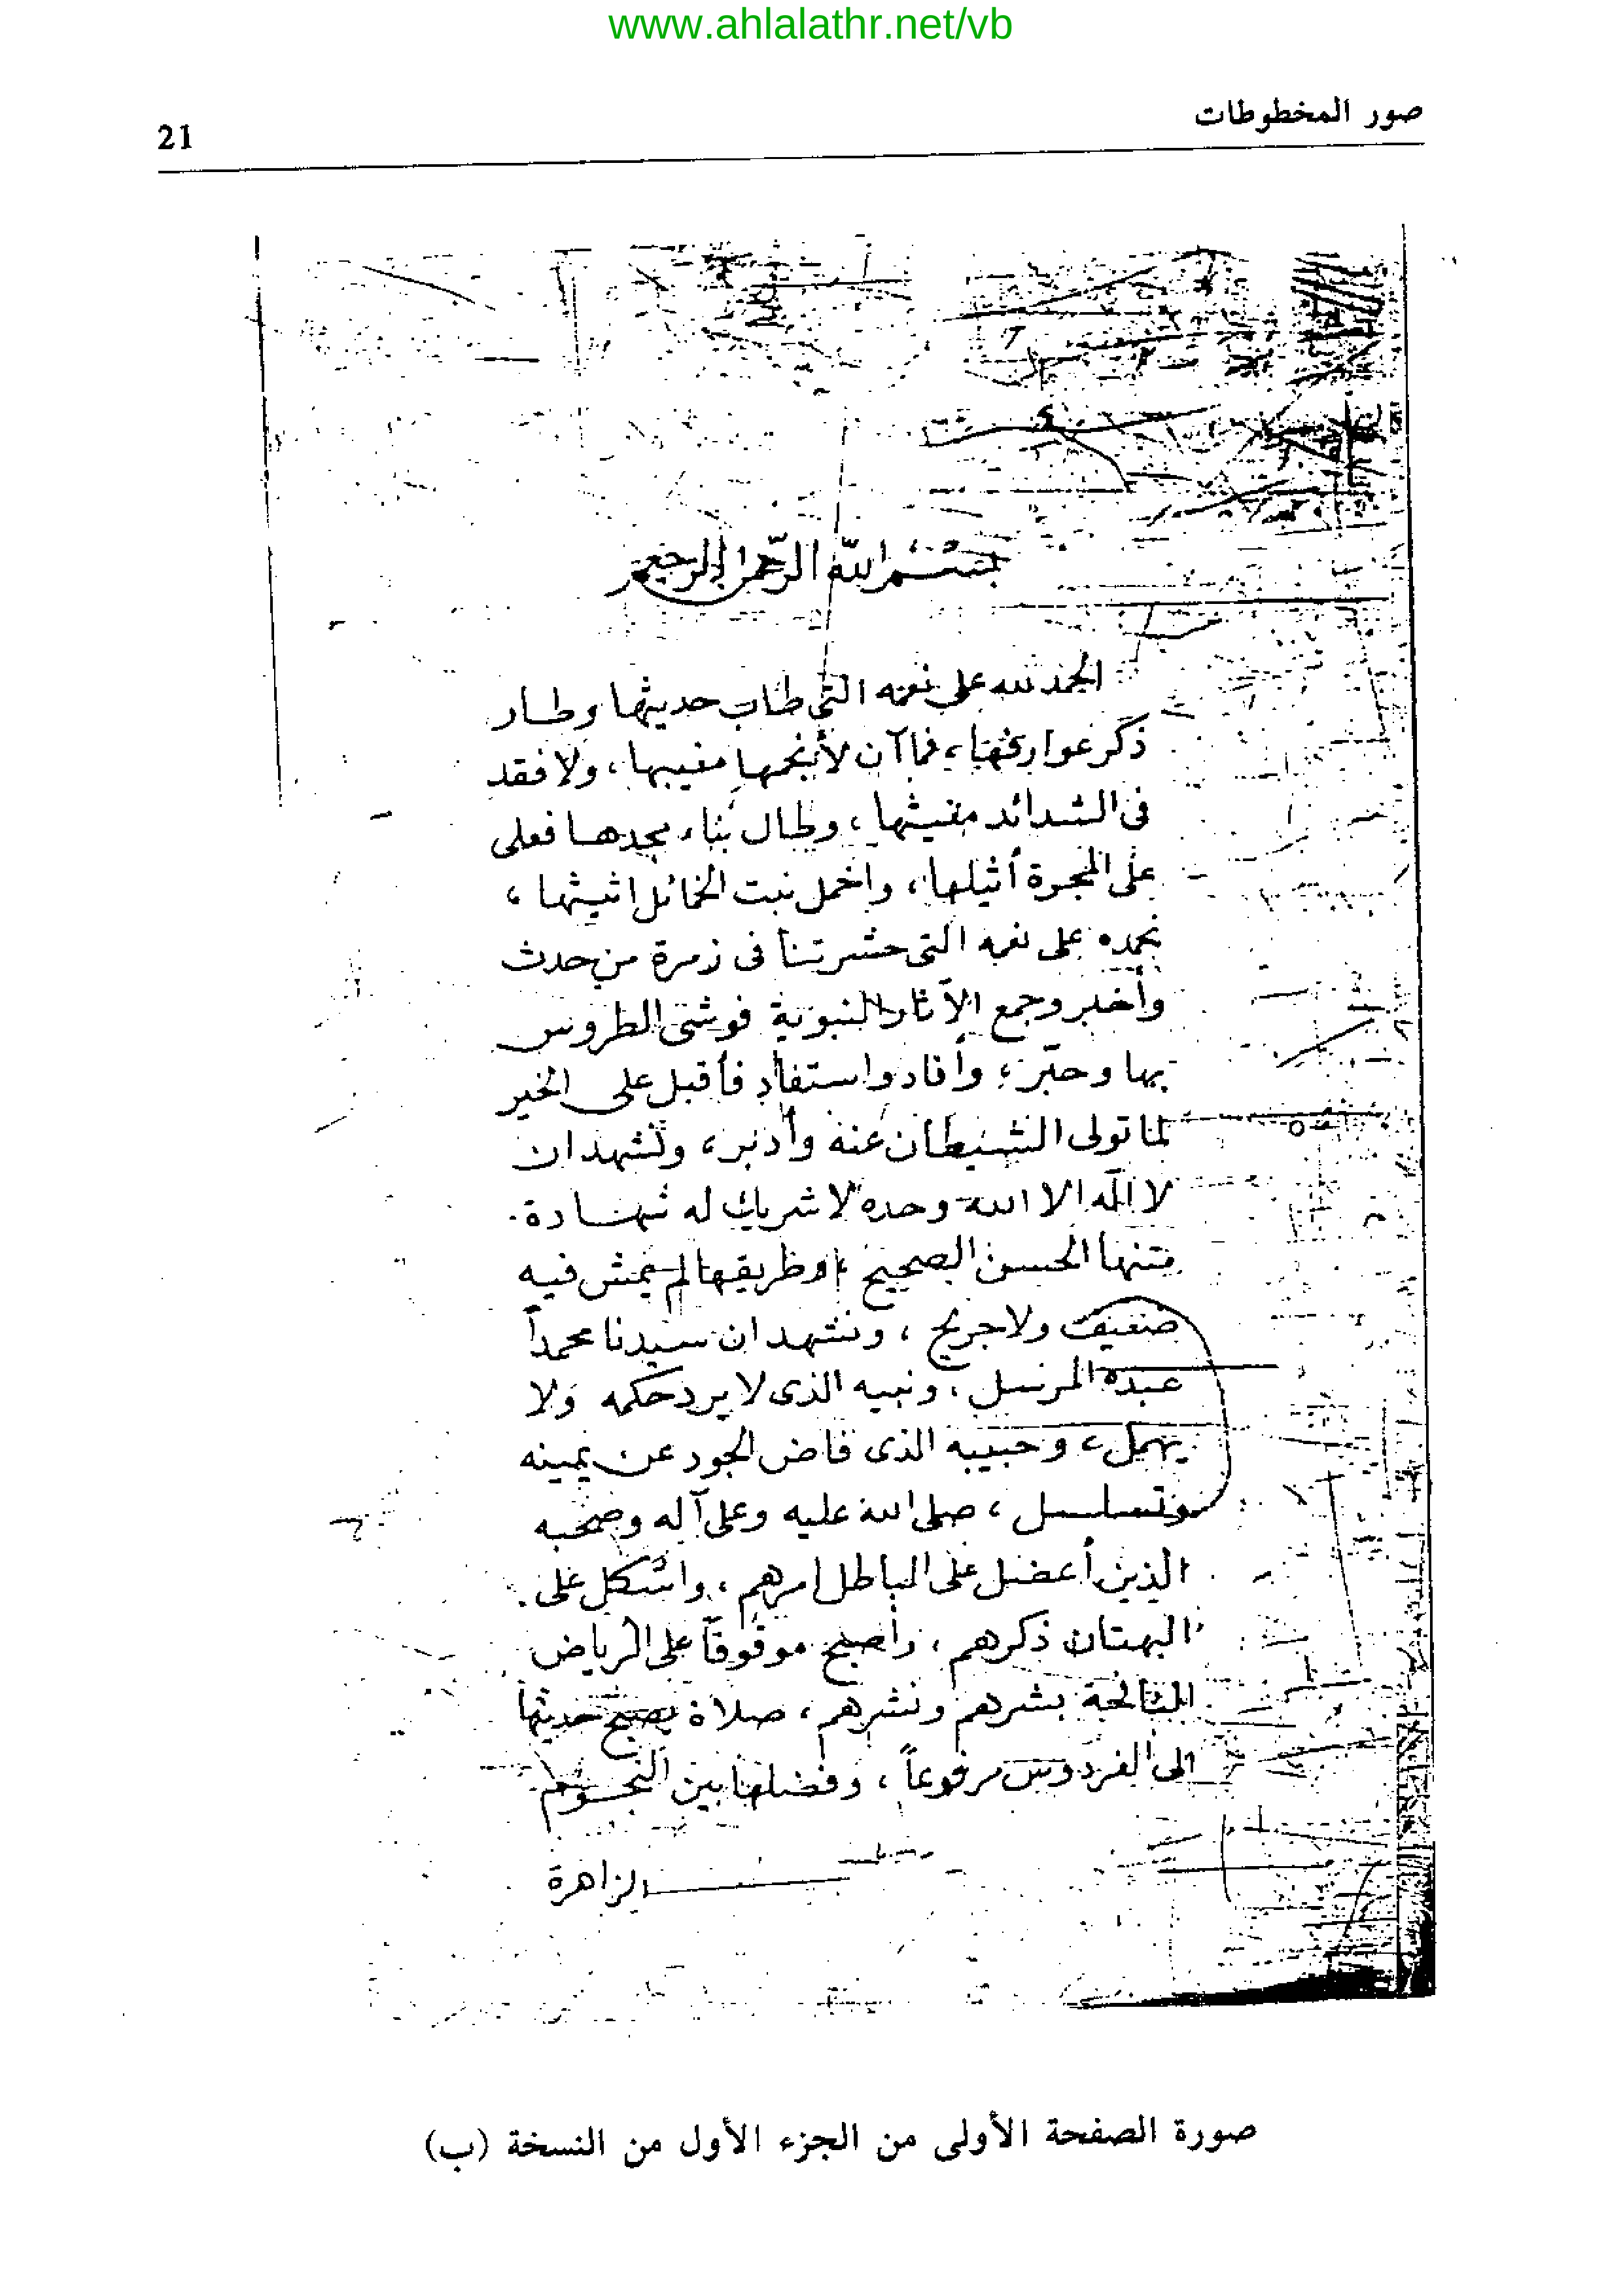 www.ahlalathr.net/vb
صور المخطوطات
21
بسم الله الرحمن الرحيم
الحمد لله على نعمه التى طاب حديثها وطار
ذكر عوارفها، فما آن لأنجمها مغيبها، ولا فقد
فى الشدائد مغيثها، وطال بناء مجدها فعلى
على المجرة أثيلها، واخمل نبت الخمائل اثيثها،
نحمده على نعمه التى حشرتنا فى زمرة من حدث
وأخبر وجمع الآثار النبوية فوشى الطروس
بها وحبّر، وأفاد واستفاد فأقبل على الخير
لما تولى الشيطان عنه وأدبر، ونشهد ان
لا اله الا الله وحده لا شريك له شهادة
متنها الحسن الصحيح، وطريقها لم يمش فيه
ضعيف ولا جريح، ونشهد ان سيدنا محمداً
عبده المرسل، ونبيه الذى لا يرد حكمه ولا
يهمل، وحبيبه الذى فاض الجود عن يمينه
وتسلسل، صلى الله عليه وعلى آله وصحبه
الذين أعضل على الباطل امرهم، واشكل على
البهتان ذكرهم، وأصبح موقوفاً على الرياض
بشرهم ونشرهم، صلاة يصبح حديثها
الى الفردوس مرفوعاً، وفضلها بين النجوم
الزاهرة
صورة الصفحة الأولى من الجزء الأول من النسخة (ب)